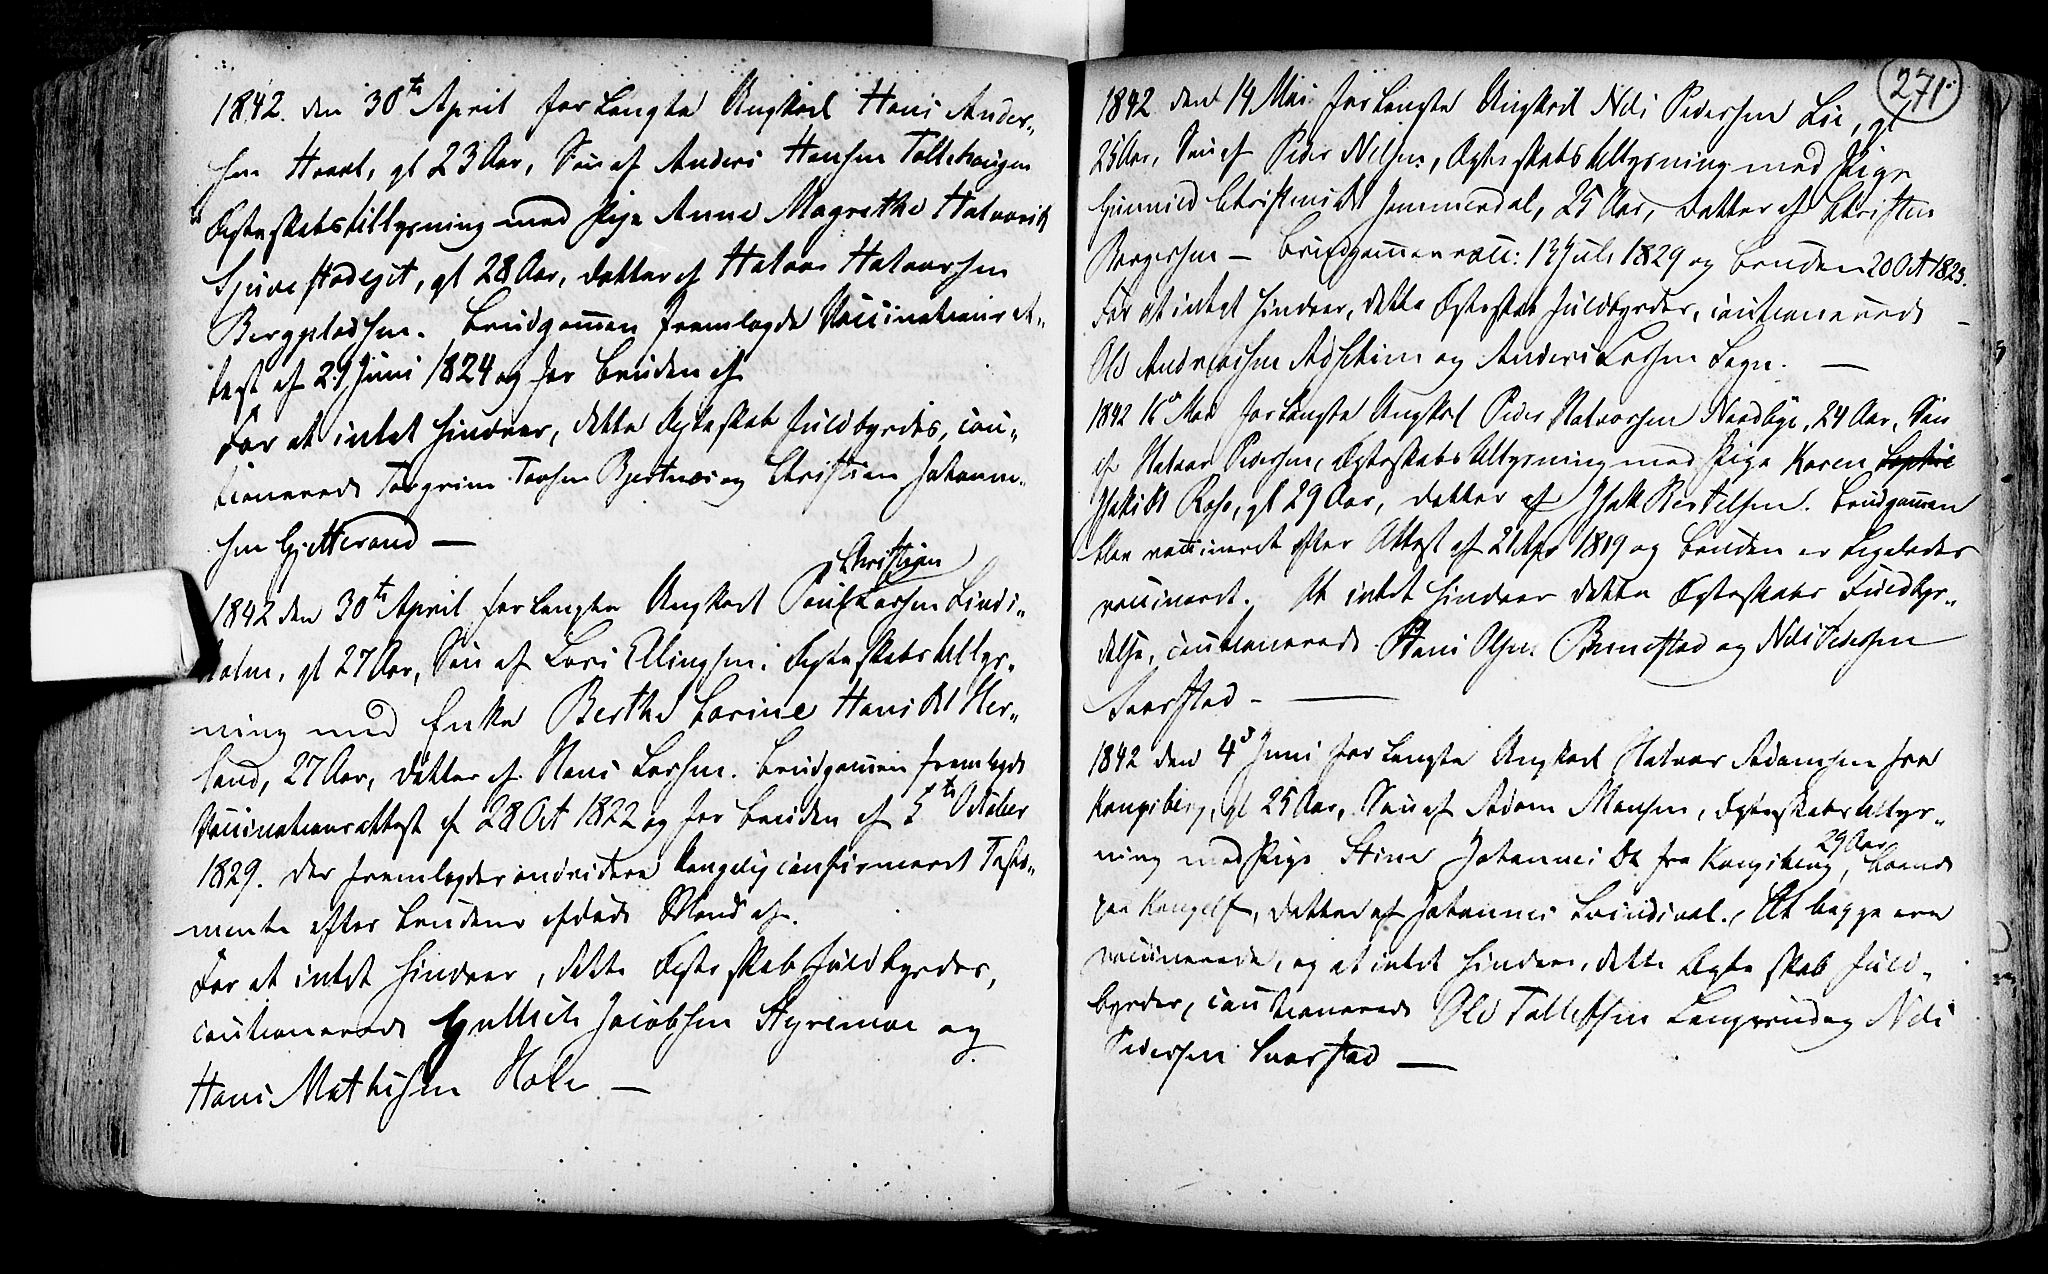 1842. den 30te April forlangte Ungkarl Hans Ander„
sen Hvaal, gl 23 Aar, Søn af Anders Hansen Tollehaugen
Ægteskabstillysning med Pige Anne Magrethe Halvorsdt
gl 28 Aar, Datter af Halvor Halvorsen
Bergpladsen. Brudgommen fremlagde Vaccinationsat„
test af 29 Juni 1824 og for Bruden af
For at intet hindrer, dette Ægteskab fuldbyrdes, cau„
tionerede Torgrim Torsen Bjertnæs og Christian Johanne„
sen Gjetterand —
Christian
1842 den 30te April forlangte Ungkarl Poul Larsen Linds„
holm, gl 27 Aar, Søn af Lars Ellingsen, Ægteskabstillys„
ning med Enke Berthe Karine Hansdt Her„
land, 27 Aar, Datter af Hans Larsen. Brudgommen fremlagde
Vaccinationsattest af 28 Oct 1822 og for Bruden af 5te October
1829. Der fremlagdes endvidere kongelig confirmeret Testa„
mente efter Brudens afdøde Mand af.
For at intet hindrer, dette Ægteskab fuldbyrdes,
cautionerede Gullich Jacobsen Styrimoe og
Hans Mathisen Hole —
271.
1842 den 14 Mai forlangte Ungkarl Nils Pedersen Lie, gl
25 Aar, Søn af Peder Nelsen, Ægteskabstillysning med Pige
Gunnild Christensdt Jemmerdal, 25 Aar, Datter af Christen
Borgersen — Brudgommen vacc: 13 Juli 1829 og Bruden 20 Oct 1823.
For at intet hindrer, dette Ægteskab fuldbyrdes, cautionerede —
Ole Andreassen Aslheim og Anders Larsen Lage. —
1842 16de Mai forlangte Ungkarl Peder Halvorsen Nordbye, 24 Aar, Søn
af Halvor Pedersen, Ægteskabstillysning med Pige Karen Sophie
Isaksdt Rasp, gl 29 Aar, Datter af Isak Bertelsen. Brudgommen
blev vaccineret efter Attest af 21 Apr 1819 og Bruden er ligeledes
vaccineret. At intet hindrer dette Ægteskabs Fuldbyr„
delse, cautionerede Hans Olsen Brunstad og Nils Pedersen
Svarstad —
1842 den 4de Juni forlangte Ungkarl Halvor Adamsen fra
Kongsberg, gl 25 Aar, Søn af Adam Monsen, Ægteskabstillys„
29 Aar
ning med Pige Stine Johannesdt fra Kongsberg, boende
paa Datter af Johannes At begge ere
vaccinerede, og at intet hindrer, dette Ægteskab fuld„
byrdes, cautionerede Ole Tollefsen Langerud og Nils
Pedersen Svarstad —